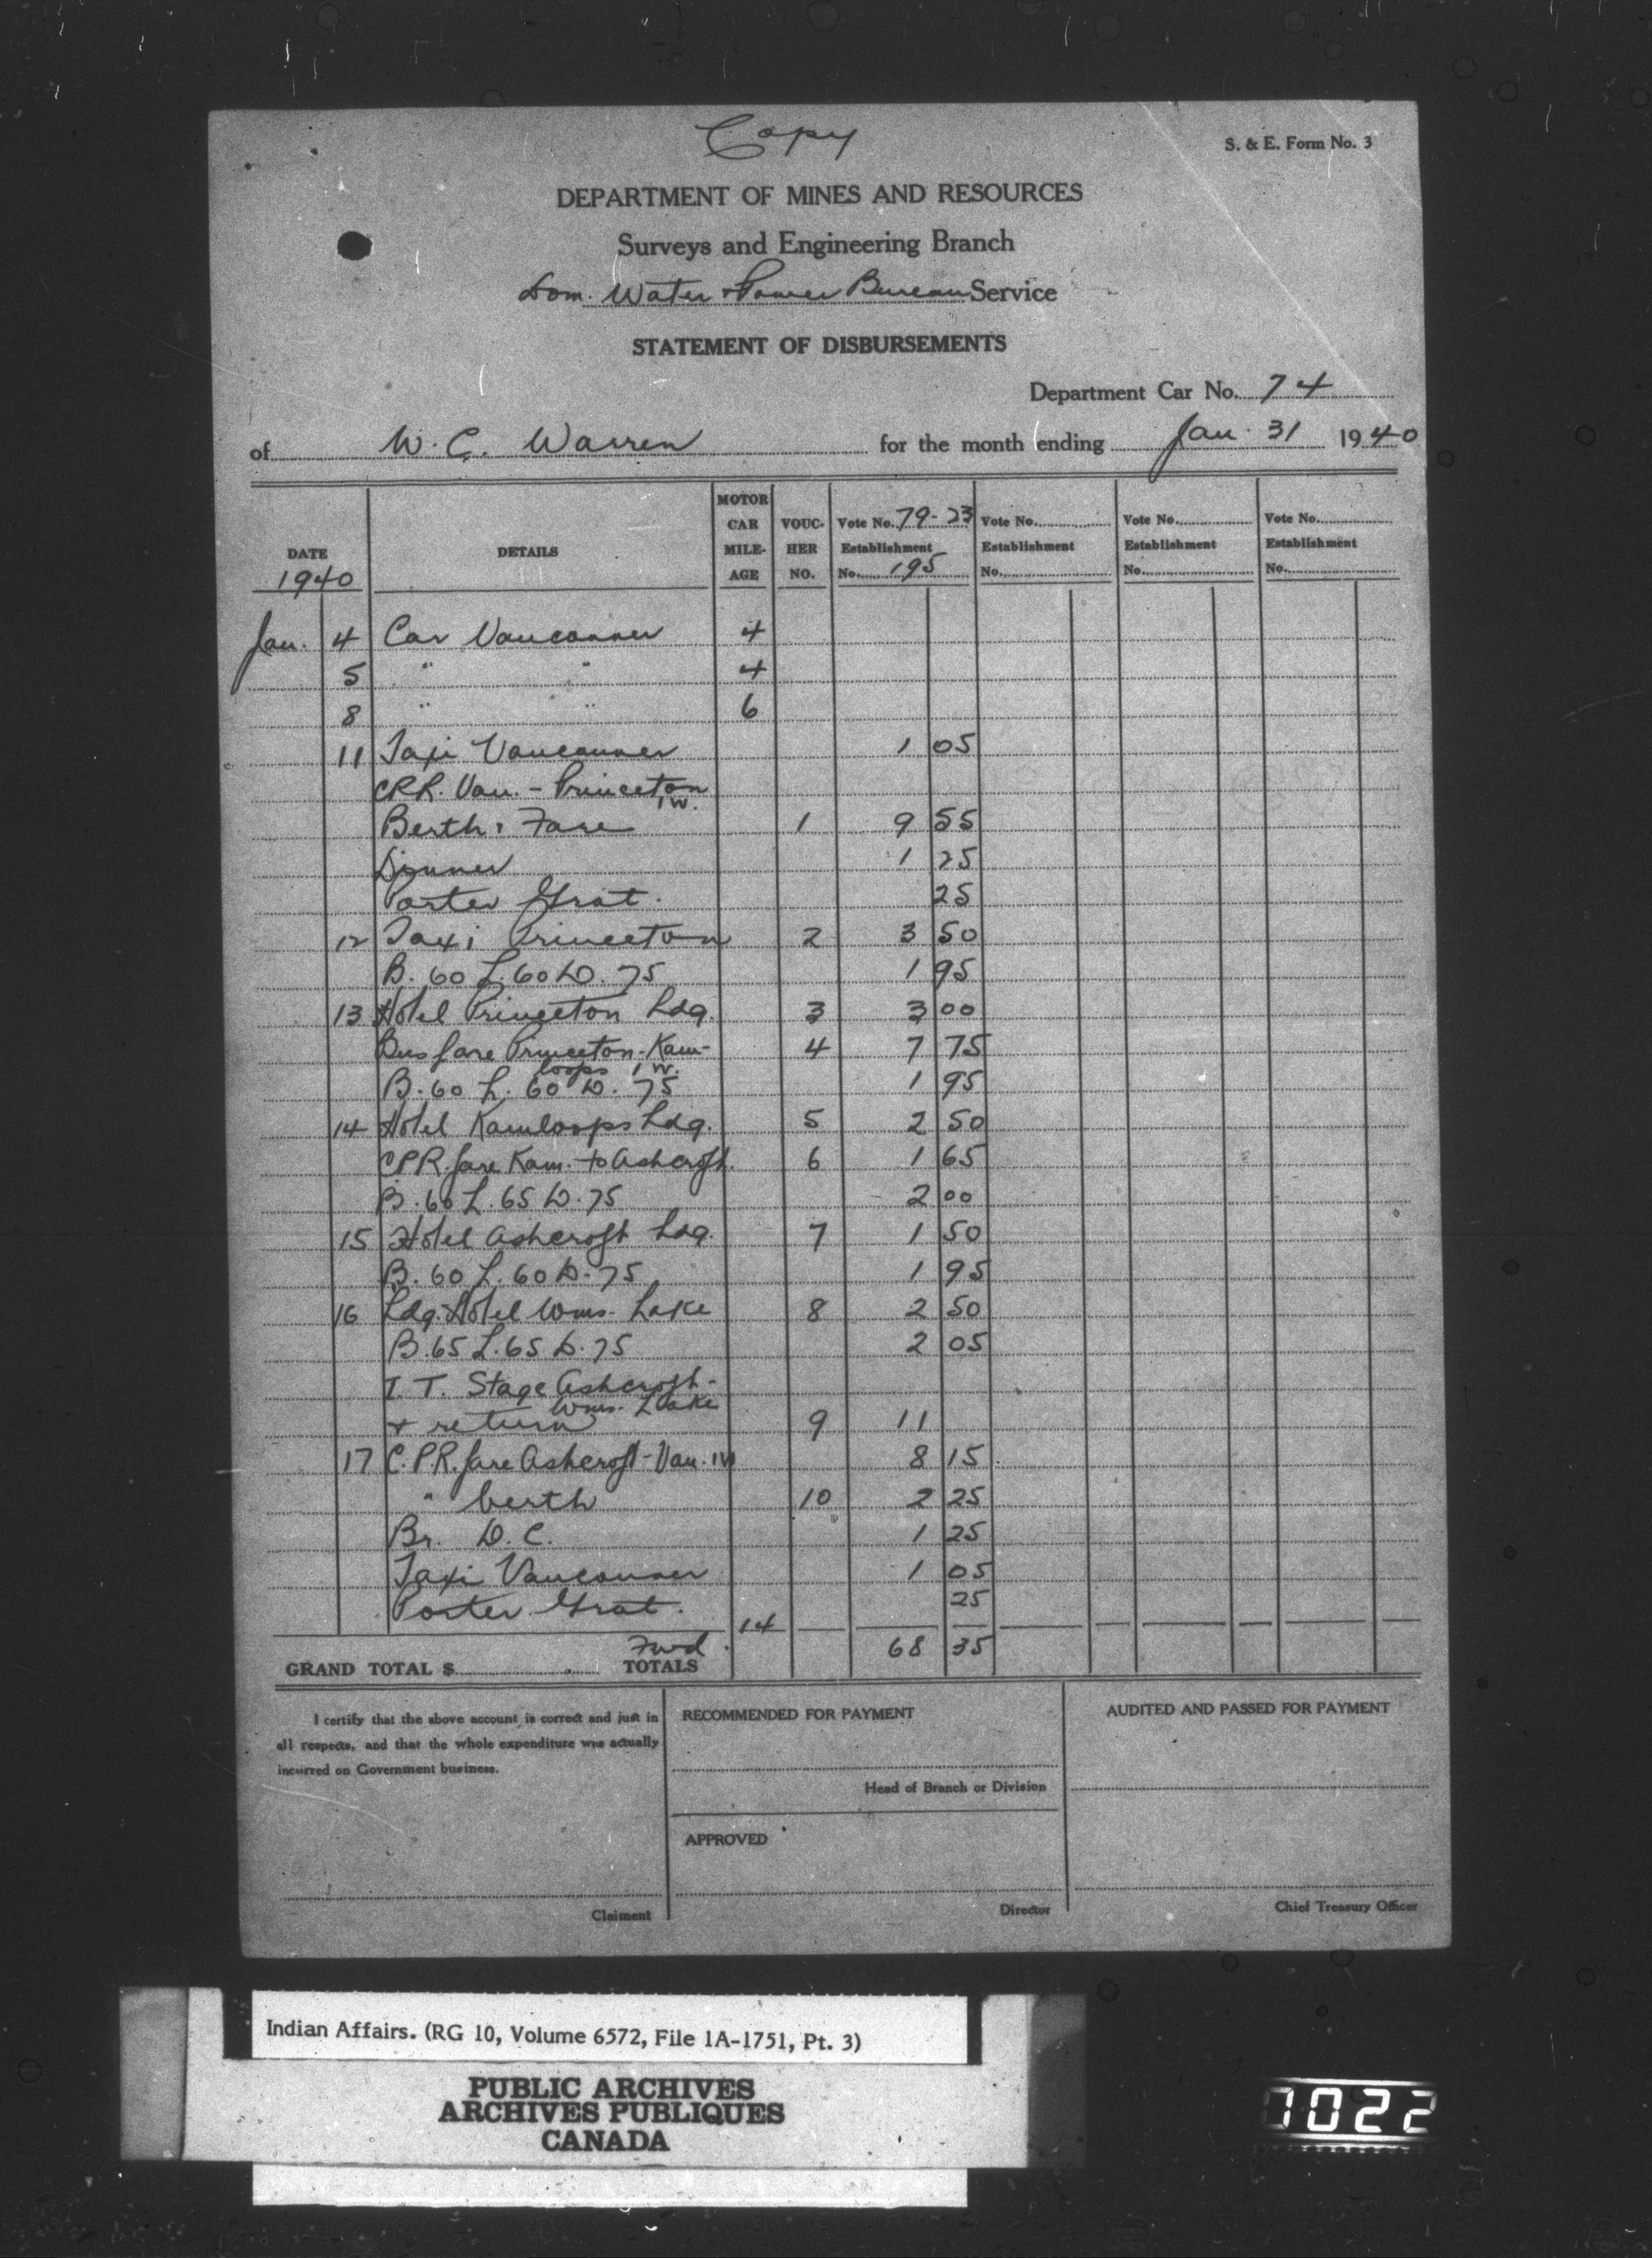 Copy
S. & E. Form No. 3
DEPARTMENT OF MINES AND RESOURCES
Surveys and Engineering Branch
Dom. Water & Power Bureau Service
STATEMENT OF DISBURSEMENTS
Department Car No. 74
of W. C. Warren for the month ending Jan. 31 1940
DATE 1940 DETAILS MOTOR CAR MILE-AGE VOUC-HER NO. Vote No. 79-23 Establishment No. 195 Vote No. Establishment No. Vote No. Establishment No. Vote No. Establishment No.
Jan. 4 Car Vancouver 4
5 " " 4
8 " " 6
11 Taxi Vancouver 1 05
CPR. Van. - Princeton 1 W.
Berth & Fare 1 9 55
Dinner 1 25
Porter Grat. 25
12 Taxi Princeton 2 3 50
B. 60 L. 60 D. 75 1 95
13 Hotel Princeton Ldg. 3 3 00
Bus fare Princeton-Kam- 4 7 75
loops 1 W.
B. 60 L. 60 D. 75 1 95
14 Hotel Kamloops Ldg. 5 2 50
CPR. fare Kam. to Ashcroft. 6 1 65
B. 60 L. 65 D. 75 2 00
15 Hotel Ashcroft Ldg. 7 1 50
B. 60 L. 60 D. 75 1 95
16 Ldg. Hotel Wms. Lake 8 2 50
B. 65 L. 65 D. 75 2 05
I. T. Stage Ashcroft-
Wms. Lake
& return 9 11
17 C.P.R. fare Ashcroft-Van. 1W 8 15
" berth 10 2 25
Br. D.C. 1 25
Taxi Vancouver 1 05
Porter Grat. 25
14
GRAND TOTAL $ Fwd. TOTALS 68 35
I certify that the above account is correct and just in
all respects, and that the whole expenditure was actually
incurred on Government business.
Claiment
RECOMMENDED FOR PAYMENT
Head of Branch or Division
APPROVED
Director
AUDITED AND PASSED FOR PAYMENT
Chief Treasury Officer
Indian Affairs. (RG 10, Volume 6572, File 1A-1751, Pt. 3)
PUBLIC ARCHIVES
ARCHIVES PUBLIQUES
CANADA
1022